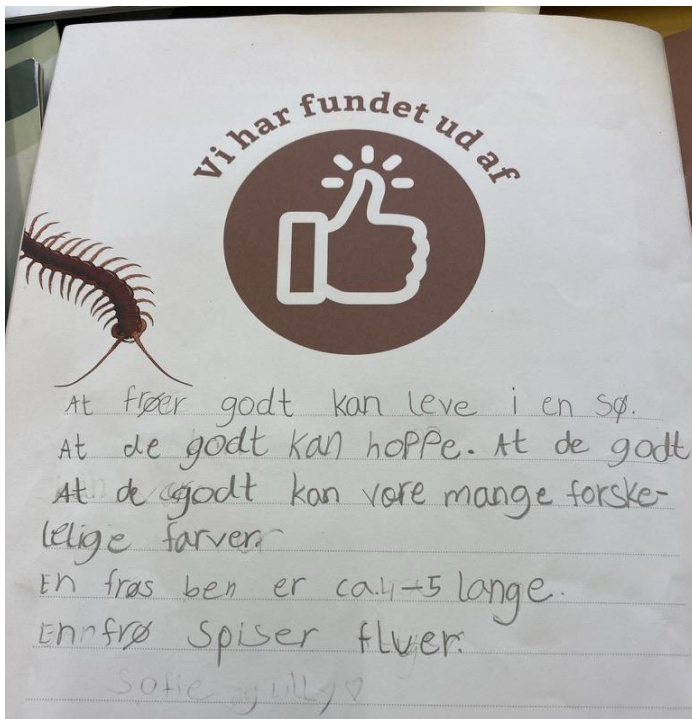 Vi har fundet ud af
At frøer godt kan leve i en sø.
At de godt kan hoppe. At de godt
At de godt kan vore mange forske-
lelige farver.
En frøs ben er ca.4-5 lange.
En frø spiser fluer.
Sofie og lilly♡